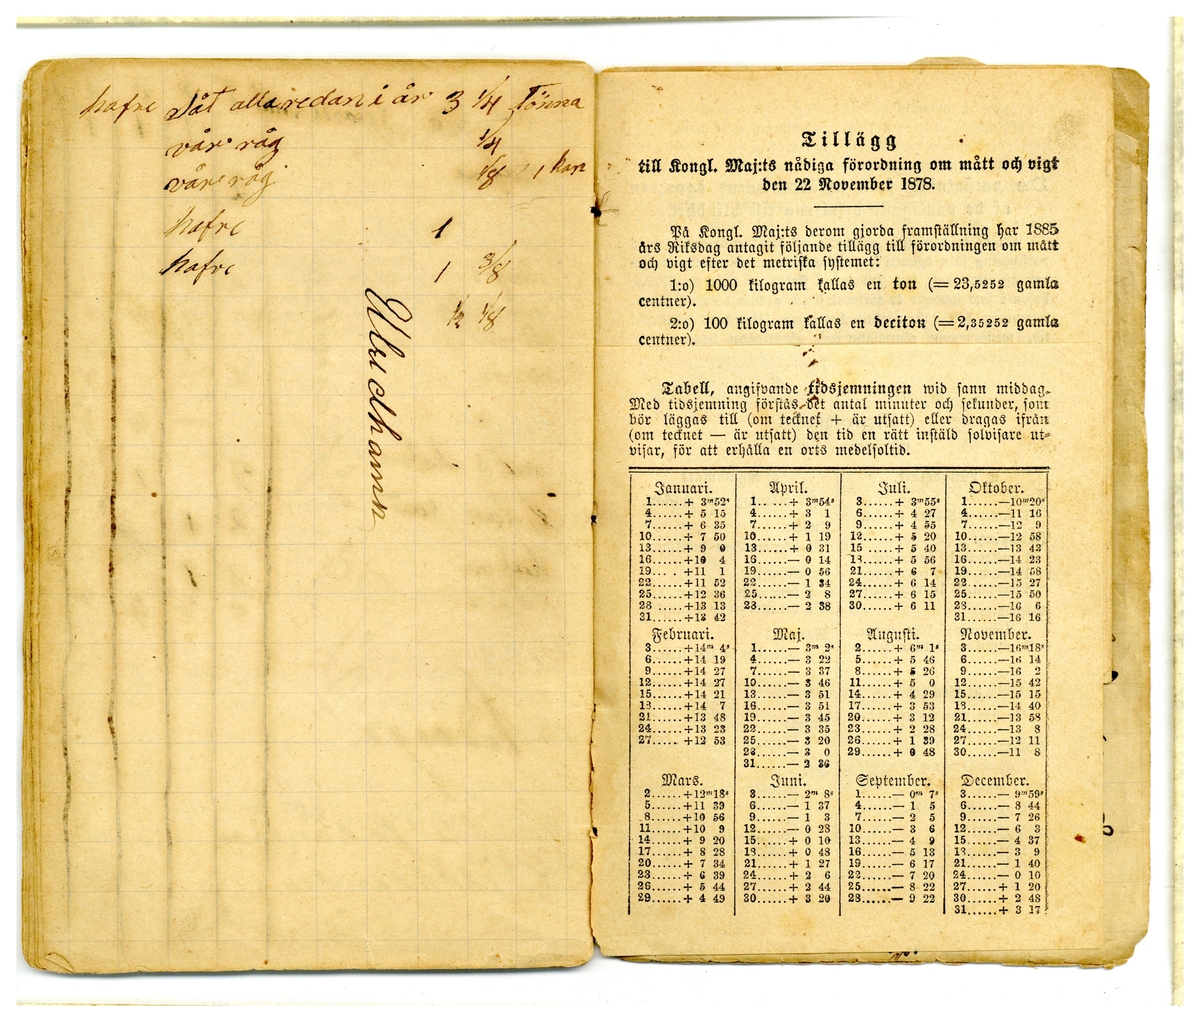 hafre Såt alla redan i år 3 1/4 Tönna
vår råg 1/4
vår råg 1/8 1 kan
hafre 1
hafre 1 3/8
1/2 1/8
Tillägg
till Kongl. Maj:ts nådiga förordning om mått och vigt
den 22 November 1878.
På Kongl. Maj:ts derom gjorda framställning har 1885
års Riksdag antagit följande tillägg till förordningen om mått
och vigt efter det metriska systemet:
1:o) 1000 kilogram kallas en ton (= 23,5252 gamla
centner).
2:o) 100 kilogram kallas en deciton (= 2,35252 gamla
centner).
Tabell, angifvande tidsjemningen wid sann middag.
Med tidsjemning förstås det antal minuter och sekunder, som
bör läggas till (om tecknet + är utsatt) eller dragas ifrån
(om tecknet — är utsatt) den tid en rätt instäld solvisare ut-
visar, för att erhålla en orts medelsoltid.
Januari.
1......+ 3m52s
4......+ 5 15
7......+ 6 35
10......+ 7 50
13......+ 9 0
16......+10 4
19......+11 1
22......+11 52
25......+12 36
28......+13 13
31......+13 42
Februari.
3......+14m 4s
6......+14 19
9......+14 27
12......+14 27
15......+14 21
18......+14 7
21......+13 48
24......+13 23
27......+12 53
Mars.
2......+12m18s
5......+11 39
8......+10 56
11......+10 9
14......+ 9 20
17......+ 8 28
20......+ 7 34
23......+ 6 39
26......+ 5 44
29......+ 4 49
April.
1......+ 3m54s
4......+ 3 1
7......+ 2 9
10......+ 1 19
13......+ 0 31
16......— 0 14
19......— 0 56
22......— 1 34
25......— 2 8
28......— 2 38
Maj.
1......— 3m 2s
4......— 3 22
7......— 3 37
10......— 3 46
13......— 3 51
16......— 3 51
19......— 3 45
22......— 3 35
25......— 3 20
28......— 3 0
31......— 2 36
Juni.
3......— 2m 8s
6......— 1 37
9......— 1 3
12......— 0 28
15......+ 0 10
18......+ 0 48
21......+ 1 27
24......+ 2 6
27......+ 2 44
30......+ 3 20
Juli.
3......+ 3m55s
6......+ 4 27
9......+ 4 55
12......+ 5 20
15......+ 5 40
18......+ 5 56
21......+ 6 7
24......+ 6 14
27......+ 6 15
30......+ 6 11
Augusti.
2......+ 6m 1s
5......+ 5 46
8......+ 5 26
11......+ 5 0
14......+ 4 29
17......+ 3 53
20......+ 3 12
23......+ 2 28
26......+ 1 39
29......+ 0 48
September.
1......— 0m 7s
4......— 1 5
7......— 2 5
10......— 3 6
13......— 4 9
16......— 5 13
19......— 6 17
22......— 7 20
25......— 8 22
28......— 9 22
Oktober.
1......—10m20s
4......—11 16
7......—12 9
10......—12 58
13......—13 43
16......—14 23
19......—14 58
22......—15 27
25......—15 50
28......—16 6
31......—16 16
November.
3......—16m18s
6......—16 14
9......—16 2
12......—15 42
15......—15 15
18......—14 40
21......—13 58
24......—13 8
27......—12 11
30......—11 8
December.
3......— 9m59s
6......— 8 44
9......— 7 26
12......— 6 3
15......— 4 37
18......— 3 9
21......— 1 40
24......— 0 10
27......+ 1 20
30......+ 2 48
31......+ 3 17